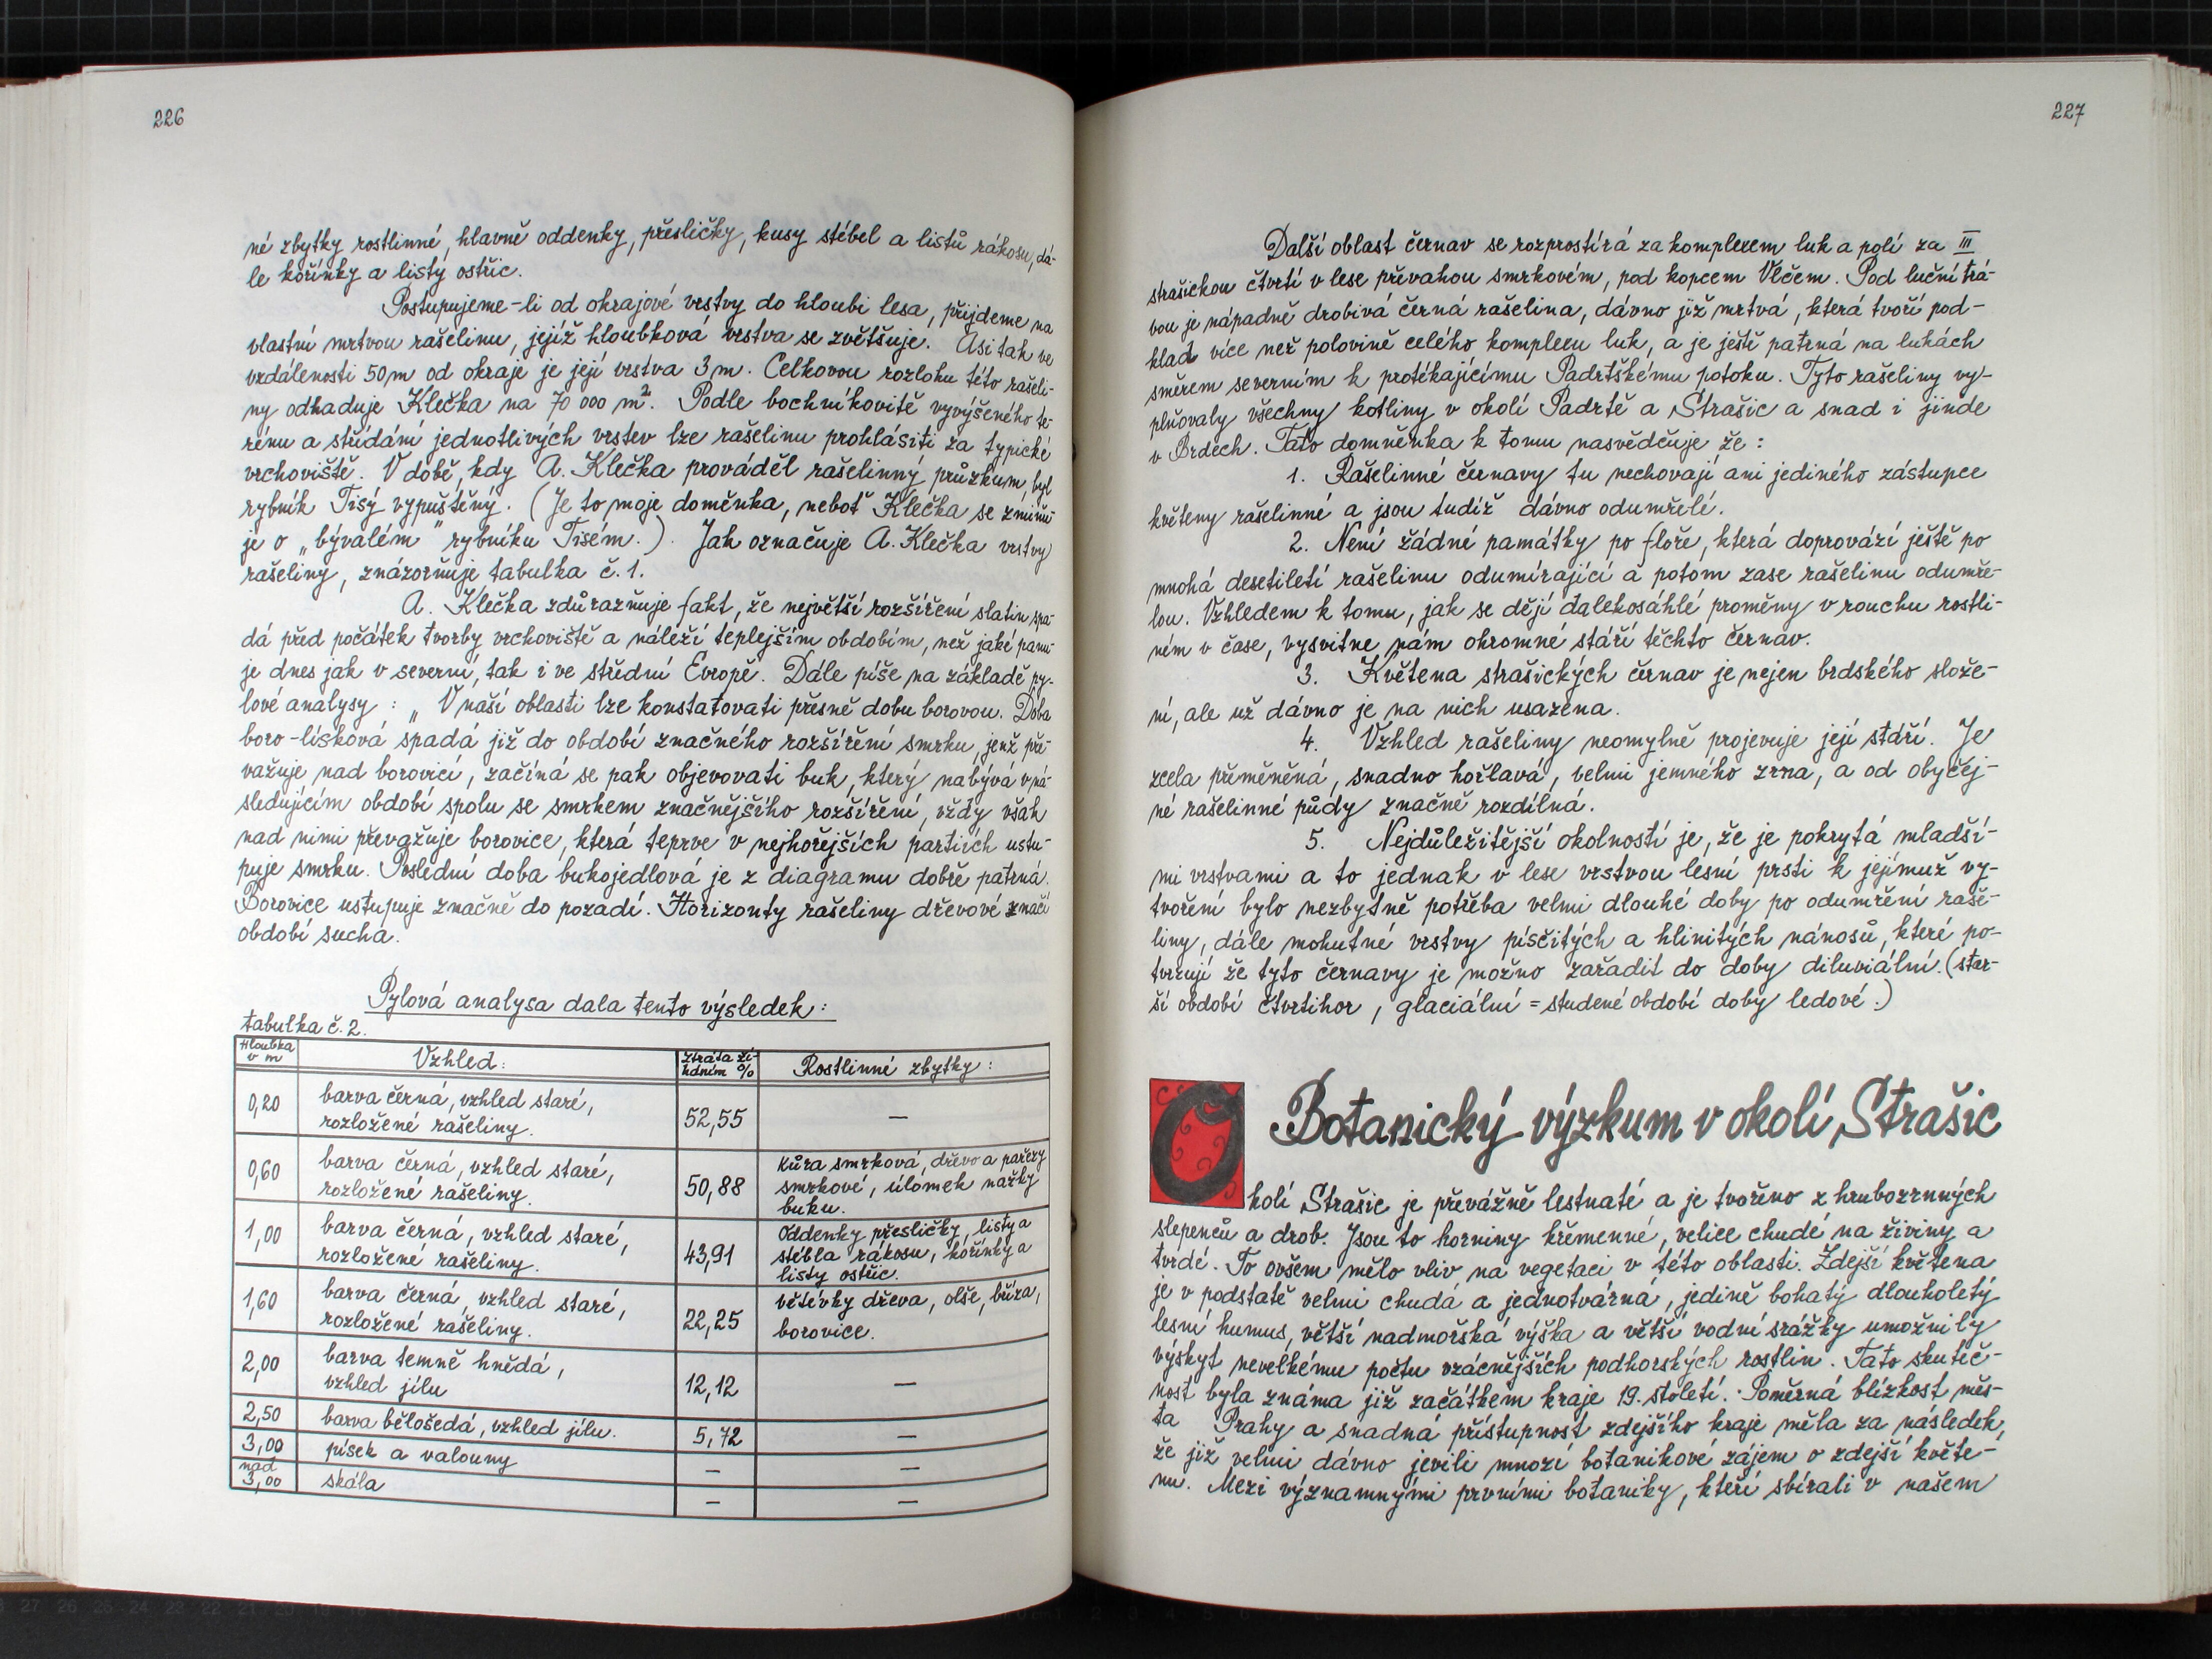 226
né zbytky rostlinné, hlavně oddenky, přesličky, kusy stébel a listů rákosu, dá-
le kořínky a listy ostřic.
Postupujeme-li od okrajové vrstvy do hloubi lesa, přijdeme na
vlastní mrtvou rašelinu, jejíž hloubková vrstva se zvětšuje. Asi tak ve
vzdálenosti 50m od okraje je její vrstva 3m. Celkovou rozlohu této rašeli-
ny odhaduje Klečka na 70 000 m². Podle bochníkovitě vyvýšeného te-
rénu a střídání jednotlivých vrstev lze rašelinu prohlásiti za typické
vrchoviště. V době, kdy A. Klečka prováděl rašelinný průzkum, byl
rybník Tisý vypuštěný. (Je to moje doměnka, neboť Klečka se zmiňu-
je o „bývalém" rybníku Tisém.). Jak označuje A. Klečka vrstvy
rašeliny, znázorňuje tabulka č. 1.
A. Klečka zdůrazňuje fakt, že největší rozšíření slatin spa-
dá před počátek tvorby vrchoviště a náleží teplejším obdobím, než jaké panu-
je dnes jak v severní, tak i ve střední Evropě. Dále píše na základě py-
lové analysy : „ V naší oblasti lze konstatovati přesně dobu borovou. Doba
boro-lísková spadá již do období značného rozšíření smrku, jenž pře-
važuje nad borovicí, začíná se pak objevovati buk, který nabývá v ná-
sledujícím období spolu se smrkem značnějšího rozšíření, vždy však
nad nimi převažuje borovice, která teprve v nejhořejších partiích ustu-
puje smrku. Poslední doba bukojedlová je z diagramu dobře patrná.
Borovice ustupuje značně do pozadí. Horizonty rašeliny dřevové značí
období suchá.
Pylová analysa dala tento výsledek:
tabulka č. 2.
Hloubka v m | Vzhled: | ztráta ží-háním % | Rostlinné zbytky:
0,20 | barva černá, vzhled staré, rozložené rašeliny. | 52,55 | —
0,60 | barva černá, vzhled staré, rozložené rašeliny. | 50,88 | kůra smrková, dřevo a pařezy smrkové, úlomek nažky buku.
1,00 | barva černá, vzhled staré, rozložené rašeliny. | 43,91 | oddenky přesličky, listy a stébla rákosu, kořínky a listy ostřic.
1,60 | barva černá, vzhled staré, rozložené rašeliny. | 22,25 | větévky dřeva, olše, bříza, borovice.
2,00 | barva temně hnědá, vzhled jílu | 12,12 | —
2,50 | barva bělošedá, vzhled jílu. | 5,72 | —
3,00 | písek a valouny | — | —
nad 3,00 | skála | — | —
227
Další oblast černav se rozprostírá za komplexem luk a polí za III
strašickou čtvrtí v lese převahou smrkovém, pod kopcem Vlčem. Pod luční trá-
vou je nápadně drobivá černá rašelina, dávno již mrtvá, která tvoří pod-
klad více než polovině celého komplexu luk, a je ještě patrná na lukách
směrem severním k protékajícímu Padrtškému potoku. Tyto rašeliny vy-
plňovaly všechny kotliny v okolí Padrtě a Strašic a snad i jinde
v Brdech. Tato domněnka k tomu nasvědčuje že :
1. Rašelinné černavy tu nechovají ani jediného zástupce
květeny rašelinné a jsou tudíž dávno odumřelé.
2. Není žádné památky po floře, která doprovází ještě po
mnohá desetiletí rašelinu odumírající a potom zase rašelinu odumře-
lou. Vzhledem k tomu, jak se dějí dalekosáhlé proměny v rouchu rostli-
ném v čase, vysvitne nám ohromné stáří těchto černav.
3. Květena strašických černav je nejen brdského slože-
ní, ale už dávno je na nich usazena.
4. Vzhled rašeliny neomylně projevuje její stáří. Je
zcela přeměněná, snadno hořlavá, velmi jemného zrna, a od obyčej-
né rašelinné půdy značně rozdílná.
5. Nejdůležitější okolností je, že je pokrytá mladší-
mi vrstvami a to jednak v lese vrstvou lesní prsti k jejímuž vy-
tvoření bylo nezbytně potřeba velmi dlouhé doby po odumření raše-
liny, dále mohutné vrstvy písčitých a hlinitých nánosů, které po-
tvrzují že tyto černavy je možno zařadit do doby diluviální. (star-
ší období čtvrtihor, glaciální = studené období doby ledové.)
Botanický výzkum v okolí Strašic
Okolí Strašic je převážně lesnaté a je tvořeno z hrubozrnných
slepenců a drob. Jsou to horniny křemenné, velice chudé na živiny a
tvrdé. To ovšem mělo vliv na vegetaci v této oblasti. Zdejší květena
je v podstatě velmi chudá a jednotvárná, jedině bohatý dlouholetý
lesní humus, větší nadmořská výška a větší vodní srážky umožnily
výskyt nevelkému počtu vzácnějších podhorských rostlin. Tato skuteč-
nost byla známa již začátkem kraje 19. století. Poměrná blízkost měs-
ta Prahy a snadná přístupnost zdejšího kraje měla za následek,
že již velmi dávno jevili mnozí botanikové zájem o zdejší květe-
nu. Mezi významnými prvními botaniky, kteří sbírali v našem